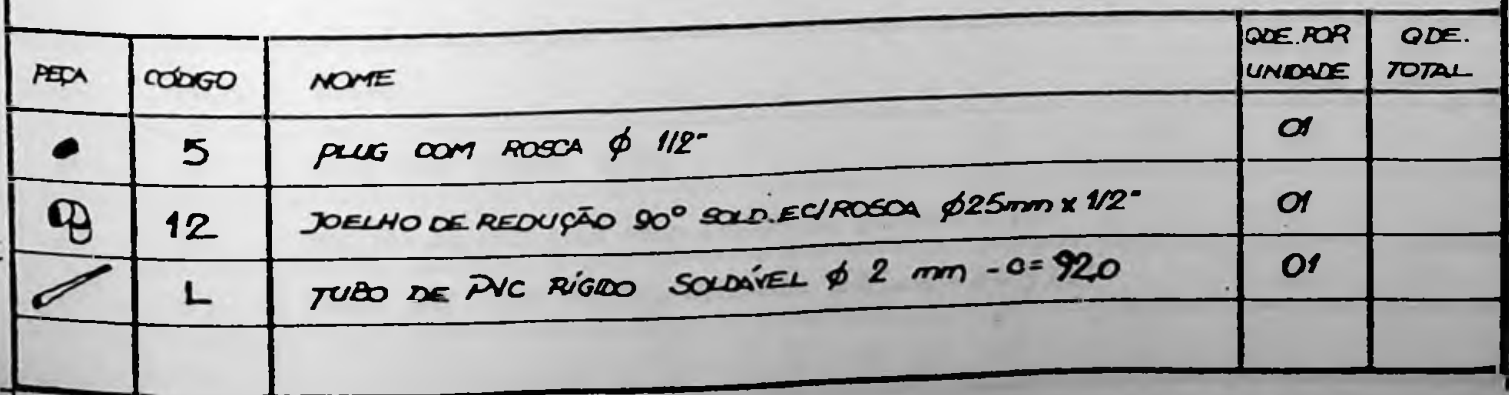 PEÇA CÓDIGO NOME QDE.POR UNIDADE QDE. TOTAL
5 PLUG COM ROSCA ϕ 1/2" 01
12 JOELHO DE REDUÇÃO 90° SOLD.EC/ROSCA ϕ25mm x 1/2" 01
L TUBO DE PVC RÍGIDO SOLDÁVEL ϕ 2 mm - C= 920 01